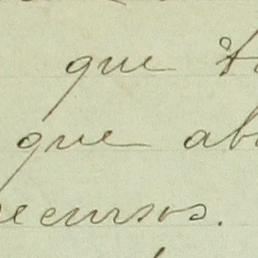 que
que
recursos.